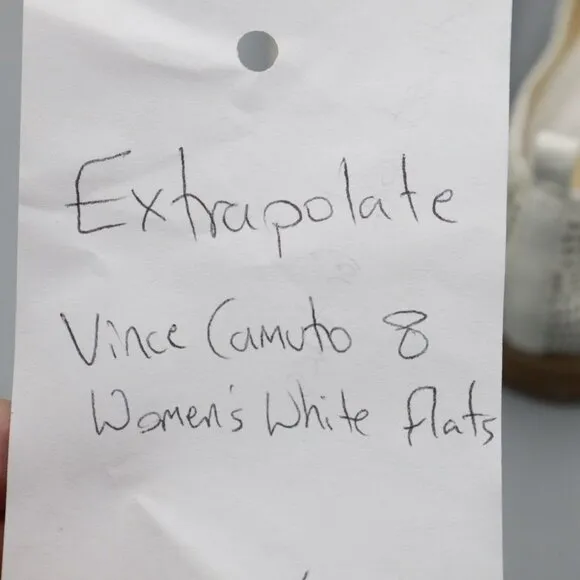 Extrapolate
Vince Camuto 8
Women's White flats